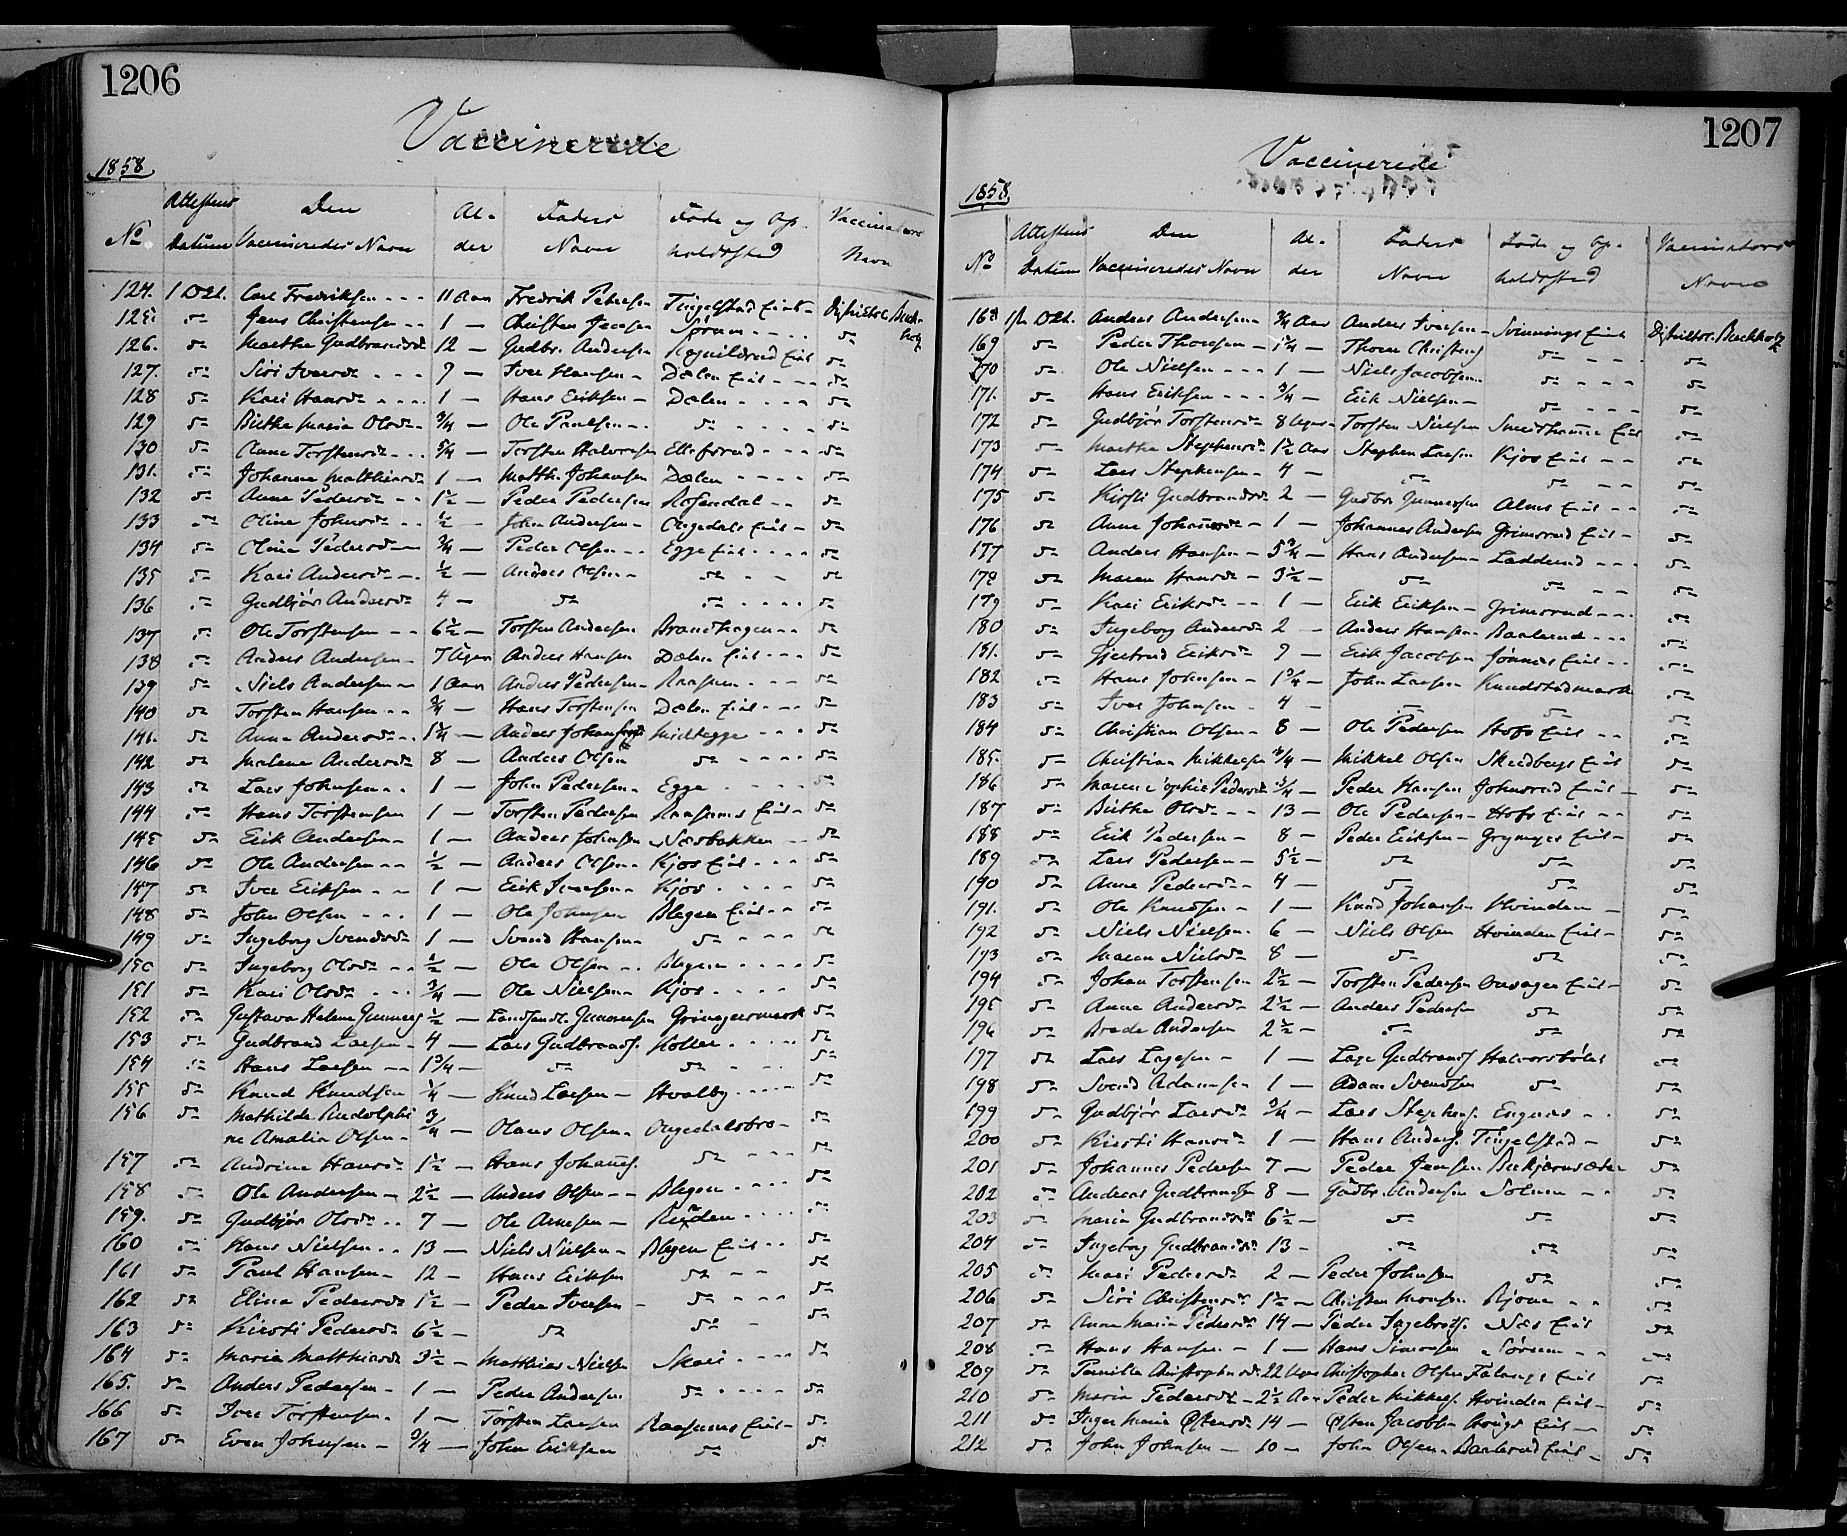 1206
Vaccinerede
1858
No
Attestens Datum
Den Vaccineredes Navn
Alder
Faders Navn
Føde og Opholdssted
Vaccinators Navn
124. 1 Oct. Carl Fredriksen - - - 11 Aar Fredrik Petersen Tingelstad Eie - Districtsl. Buchholz
125. do Jens Christensen - - 1 — Christen Jensen Sørum - - - do
126. do Marthe Gudbransd. 12 — Gudbr. Andersen Eie do
127. do Siri Iversd. - - - 9 — Iver Hansen - Dælen Eie - - - do
128 do Kari Hansd. - - - 1 — Hans Eriksen - Dælen - - - do
129 do Birthe Maria Olsd. - 3/4 — Ole Paulsen - - do - - - - do
130 do Anne Torstensd. - - 5/4 — Torsten Halvorsen Ellefsrud - - - do
131. do Johanne Matthiesd. 1 — Matth. Johansen Dælen - - - - do
132 do Anne Pedersd. - - 1½ — Peder Pedersen Rosendal - - do
133 do Oline Johnsd. - - ½ — John Andersen - Eie - do
134 do Oline Pedersd. - 3/4 — Peder Olsen - - Egge Eie - - - do
135 do Kari Andersd. - - ½ — Anders Olsen - do - - do
136 do Gudbjør Andersd. 4 — do do - - - - do
137 do Ole Torstensen - - 6½ — Torsten Andersen Brandhagen - - do
138 do Anders Andersen - 7 Uger Anders Hansen Dælen Eie - - - do
139 do Niels Andersen - 1 Aar Anders Pedersen - Raasum - - - do
140 do Torsten Hansen - - 3/4 — Hans Torstensen Dælen Eie - - - do
141. do Anne Andersd. - - 1¼ — Anders Midtegge - - - do
142 do Malene Andersd. 8 — Anders Olsen do - - - - do
143 do Lars Johnsen - - 1 — John Pedersen - Egge - - - - do
144 do Hans Torstensen 1 — Torsten Pedersen Raasums Eie - do
145 do Erik Andersen - 1 — Anders Johnsen Næsbakken - - do
146 do Ole Andersen - - ½ — Anders Olsen - Kjos Eie - - - do
147 do Iver Eriksen - - 1 — Erik Iversen - Kjos - - - - do
148 do John Olsen - - - 1 — Ole Johnsen Blegen Eie - - do
149 do Ingeborg Svendsd. 1 — Svend Hansen - do - - - do
150 do Ingeborg Olsd. - - ½ — Ole Olsen - - Blegen - - - - do
151 do Kari Olsd. - - - 3/4 — Ole Nielsen - Kjos - - - - do
152 do Gustava Helene Gunners. ½ — Landhandl. Gunnersen Grinagersmark do
153 do Gudbrand Larsen - 4 — Lars Gudbrands. Koller - - - - do
154 do Hans Larsen - - 1¾ — do do - - - do
155 do Knud Knudsen ¼ — Knud Larsen - Hvalby - - - do
156 do Mathilde Rudolphi
ne Amalia Olsen - 3/4 — Olaus Olsen - do
157 do Andrine Hansd. 1½ — Hans Johans. do - - - do
158 do Ole Andersen - 2½ — Anders Olsen - - Blegen - - - do
159. do Gudbjør Olsd. - - 7 — Ole Arnesen - - - - - do
160 do Hans Nielsen - - 13 — Niels Nielsen - Blegen Eie - - do
161 do Paul Hansen - 12 — Hans Eriksen do - - do
162 do Eline Pedersd. 1½ — Peder Iversen - do - - - do
163 do Kirsti Pedersd. 6½ — do do - do
164 do Maria Matthiasd. 3½ — Matthias Nielsen Skari - - - - do
165. do Anders Pedersen - 1 — Peder Andersen do - - - - do
166 do Iver Torstensen - 1 — Torsten Larsen Raasums Eie - do
167 do Even Johnsen - 3/4 — John Eriksen do do
1207
Vaccinerede
1858
No
Attestens Datum
Den Vaccineredes Navn
Alder
Faders Navn
Føde og Opholdssted
Vaccinators Navn
168 1 Oct. Anders Andersen - 3/4 Aar Anders Iversen - Svinnings Eie Districtsl. Buchholz
169 do Peder Thorsen - 1¼ — Thore Christens. do - - - - do
170 do Ole Nielsen - - - 1 — Niels Jacobsen - do - - - - do
171. do Hans Eriksen - - - 3/4 — Erik Nielsen - do - - - do
172 do Gudbjør Torstensd. 8 Uger - Torsten Nielsen Eie do
173 do Marthe Stephensd. 1½ Aar Stephen Larsen Kjos Eie - - do
174 do Lars Stephensen - 4 — do do - - do
175 do Kirsti Gudbrandsd. 2 — Gudbr. Gunnersen Alms Eie - - do
176 do Anne Johannesd. - 1 — Johannes Andersen Grimsrud Eie - do
177 do Anders Hansen - 5¾ — Hans Andersen - Laddrud - - - do
178 do Maren Hansd. - 3½ — do do - - - do
179 do Kari Eriksd. - - 1 — Erik Eriksen - Grimsrud - - - do
180 do Ingeborg Andersd. 2 — Anders Hansen - Baalerud - - - do
181. do Gjertrud Eriksd. 9 — Erik Jacobsen Eie - - do
182 do Hans Johnsen - 1¾ — John Larsen Knudstadmark do
183 do Iver Johnsen - 4 — do do do
184 do Christian Olsen - 8 — Ole Pedersen Hofs Eie - - do
185. do Christian Mikkelsen 3/4 — Mikkel Olsen Skredbergs Eie do
186 do Maren Sophie Pedersd. 3/4 — Peder Hansen Johnsrud Eie - do
187 do Birthe Olsd. - - 13 — Ole Pedersen - Hofs Eie - - do
188 do Erik Pedersen - 8 — Peder Eriksen - Grymyr Eie - do
189 do Lars Pedersen - 5½ — do do do
190 do Anne Pedersd. - 4 — do do do
191. do Ole Knudsen - 1 — Knud Johansen Hvinden — do
192 do Niels Nielsen - 6 — Niels Olsen Hvinden Eie - do
193 do Maren Nielsd. 8 — do do do
194 do Johan Torstensen 2½ — Torsten Pedersen Onsager Eie - do
195 do Anne Andersd. 2½ — Anders Pedersen do do
196 do Brede Andersen 2½ — do do do
197 do Lars Lagesen - 1 — Lage Gudbrands. Halvorsbøle do
198 do Svend Adamsen 1 — Adam Svendsen do do
199 do Gudbjør Larsd. 3/4 — Lars Stephens. Engnæs - - do
200 do Kirsti Hansd. 1 — Hans Anders. Tingelstad - do
201 do Johannes Pedersen 7 — Peder Jensen do
202 do Andreas Gudbrandsen 8 — Gudbr. Andersen Solum - - do
203 do Maria Gudbrandsd. 6½ — do do do
204 do Ingeborg Gudbrandsd. 13 - do do do
205 do Mari Pedersd. 2 — Peder Johnsen do do
206 do Siri Christensd. 1½ — Christen Monsen - - do
207 do Anne Maria Pedersd. 14 — Peder Ingebrets. Næs Eie do
208 do Hans Hansen - 1 — Hans Simonsen Sørum - - do
209 do Pernille Christophersd. 22 Uger Christopher Olsen Falangs Eie do
210 do Maria Pedersd. - 2½ Aar Peder Mikkels. Hvinden Eie - do
211 do Inger Maria Østensd. 14 — Østen Jacobsen Eie - do
212 do John Johnsen — 10 — John Olsen - Baalerud Eie - do